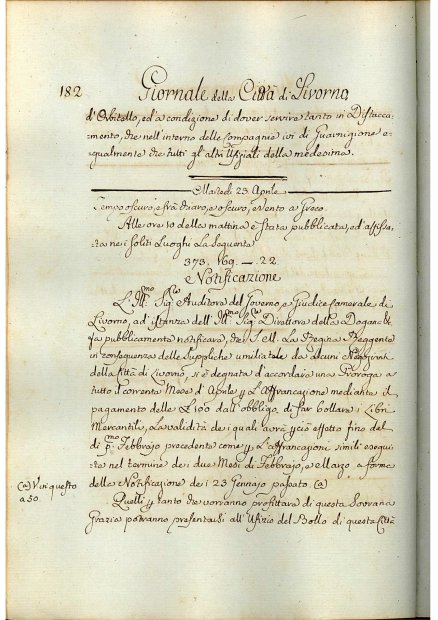 182 Giornale della Città di Livorno,
d'Orbitello, ed a condizione di dover servire tanto in Distacca-
mento, che nell'interno delle Compagnie ivi di Guarnigione e-
qualmente che tutti gl'altri Ufiziali della medesima.
Martedì 23 Aprile
Tempo oscuro, e frà chiaro, e oscuro, e Vento a Greco
Alle ore 10 della mattina è stata pubblicata, ed affis-
ta nei soliti Luoghi La seguente
373. 169. — . 22
Notificazione
L'Ill.mo Sig.re Auditore del Governo, e Giudice Camerale di
Livorno, ad istanza dell'Ill.mo Sig.re Direttore della Dogana
fa pubblicamente notificare, che S. M. La Regina Reggente
in conseguenza delle suppliche umiliatele da alcuni Negozianti
della Città di Livorno, si è degnata d'accordare una Proroga a
tutto il corrente Mese d'Aprile p L'affrancazione mediante il
pagamento delle £100 dall'obbligo di far bollare i Libri
Mercantili, La validità de i quali avrà p ciò effetto fino del
dì p.mo Febbrajo precedente come p L'affrancazioni simili esegui-
te nel termine de i due Mesi di Febbrajo, e Marzo a forma
della Notificazione de i 23 Gennajo passato. (a)
(a) V. in questo
a 50.
Quelli p tanto che vorranno profittare di questa Sovrana
Grazia potranno presentarsi all'Ufizio del Bollo di questa Città